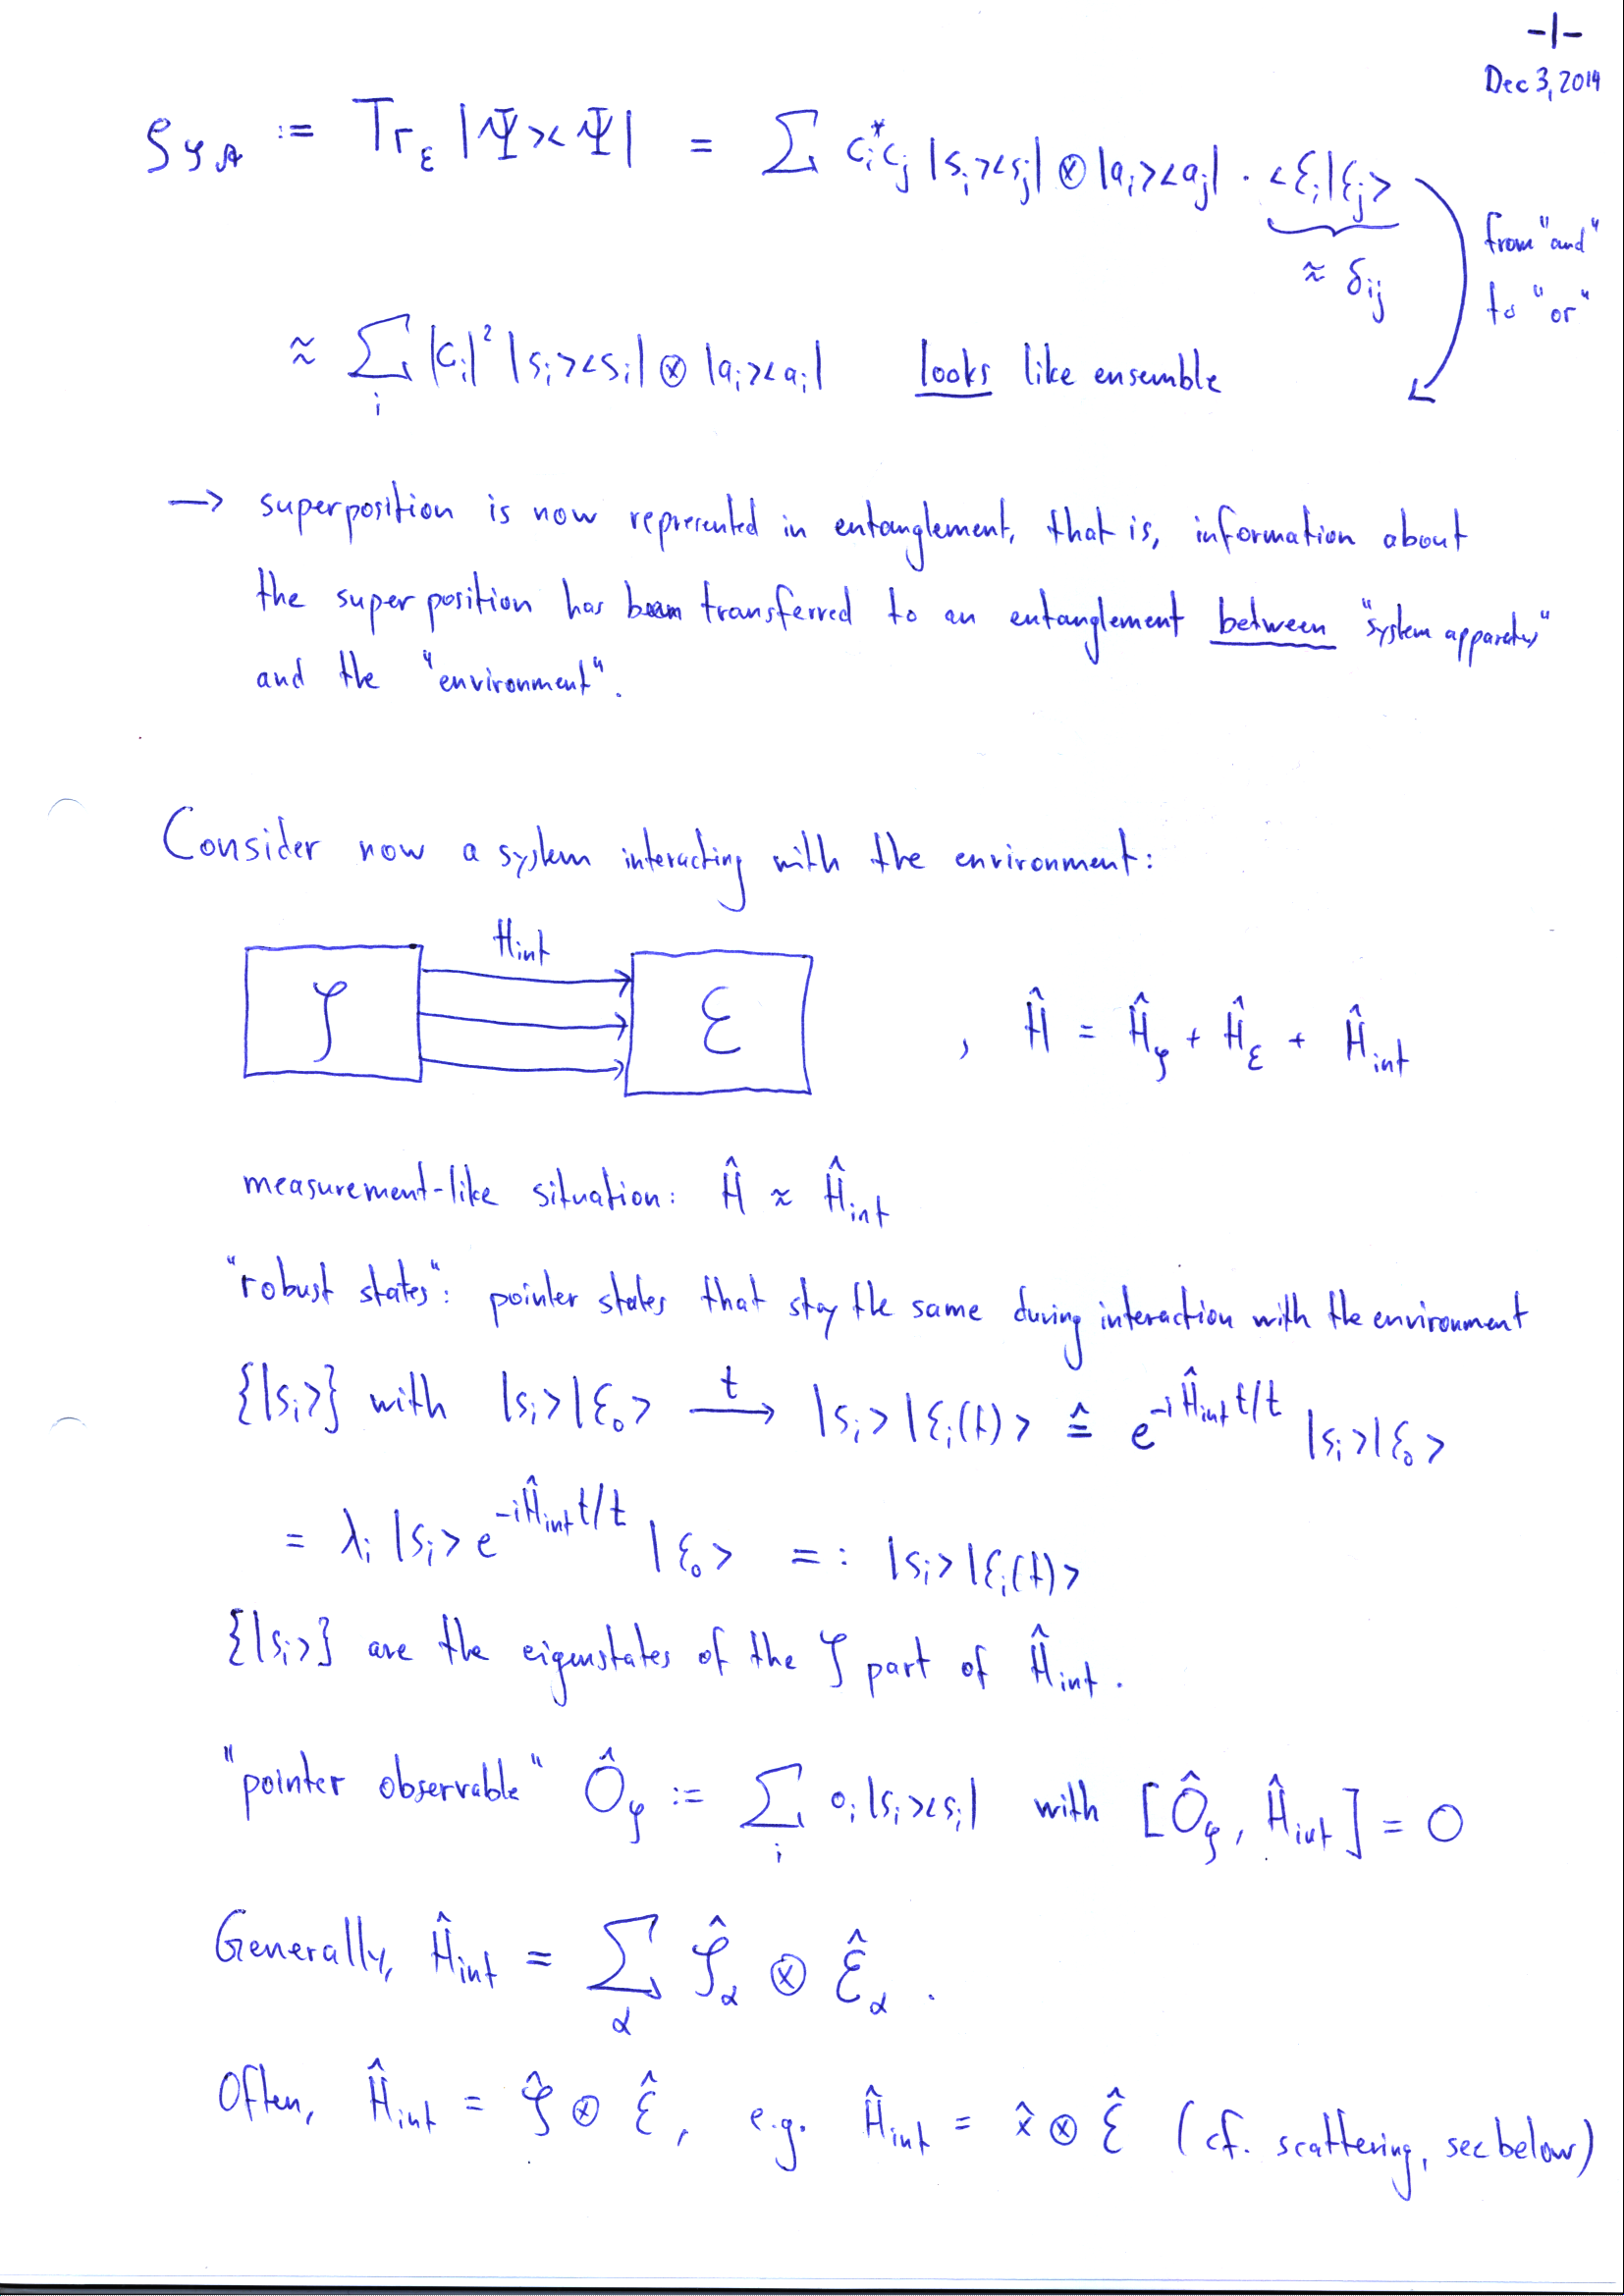 -1-
Dec 3, 2019
ρ_𝒮𝒜 := Tr_ℰ |Ψ><Ψ| = ∑ c_i^* c_j |s_i><s_j| ⊗ |a_i><a_j| · <ℰ_i|ℰ_j>
≈ δ_ij
from "and"
to "or"
≈ ∑_i |c_i|² |s_i><s_i| ⊗ |a_i><a_i| looks like ensemble
→ superposition is now represented in entanglement, that is, information about
the superposition has been transferred to an entanglement between "system apparatus"
and the "environment".
Consider now a system interacting with the environment:
H_int
𝒮 ℰ , Ĥ = Ĥ_𝒮 + Ĥ_ℰ + Ĥ_int
measurement-like situation: Ĥ ≈ Ĥ_int
"robust states": pointer states that stay the same during interaction with the environment
{|s_i>} with |s_i>|ℰ_0> →^t |s_i>|ℰ_i(t)> ≙ e^{-iĤ_int t/t} |s_i>|ℰ_0>
= λ_i |s_i> e^{-iĤ_int t/t} |ℰ_0> =: |s_i>|ℰ_i(t)>
{|s_i>} are the eigenstates of the 𝒮 part of Ĥ_int.
"pointer observable" Ô_𝒮 := ∑_i o_i |s_i><s_i| with [Ô_𝒮, Ĥ_int] = 0
Generally, Ĥ_int = ∑_α 𝒮̂_α ⊗ ℰ̂_α .
Often, Ĥ_int = 𝒮̂ ⊗ ℰ̂, e.g. Ĥ_int = x̂ ⊗ ℰ̂ (cf. scattering, see below)